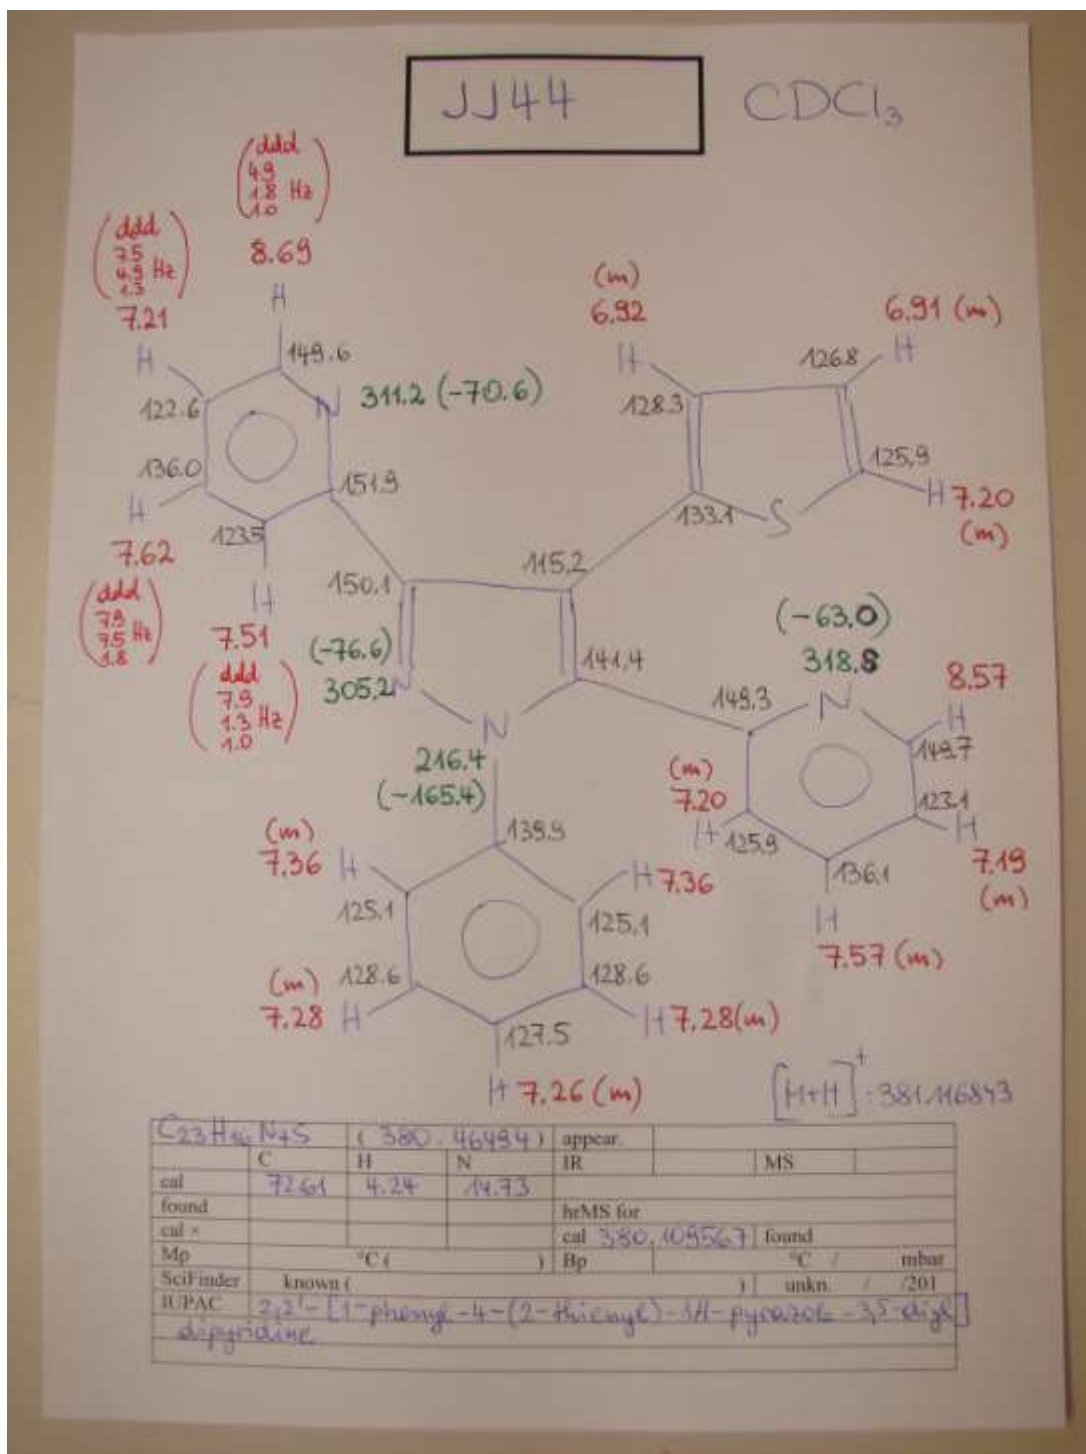 JJ44
CDCl₃
(ddd
4.9
1.8 Hz
1.0)
8.69
H
(ddd
7.5
4.9 Hz
1.3)
7.21
H
149.6
N
311.2 (-70.6)
122.6
136.0
151.9
H
123.5
7.62
H
(ddd
7.9
7.5 Hz
1.8)
7.51
(ddd
7.9
1.3 Hz
1.0)
(m)
6.92
H
6.91 (m)
H
126.8
128.3
125.9
H 7.20
(m)
133.1
S
150.1
115.2
(-76.6)
305.2
N
141.4
N
216.4
(-165.4)
(-63.0)
318.8
149.3
N
8.57
H
149.7
(m)
7.20
H
125.9
123.1
H
7.19
(m)
136.1
H
7.57 (m)
139.9
(m)
7.36
H
H 7.36
125.1
125.1
(m)
7.28
H
128.6
128.6
H 7.28 (m)
127.5
H 7.26 (m)
[M+H]⁺: 381.116843
C₂₃H₁₆N₄S (380.46494) appear.
C H N IR MS
cal 72.61 4.24 14.73
found hrMS for
cal × cal 380.109567 found
Mp °C ( ) Bp °C / mbar
SciFinder known ( ) unkn. / /201
IUPAC 2,2'-[1-phenyl-4-(2-thienyl)-1H-pyrazole-3,5-diyl]
dipyridine